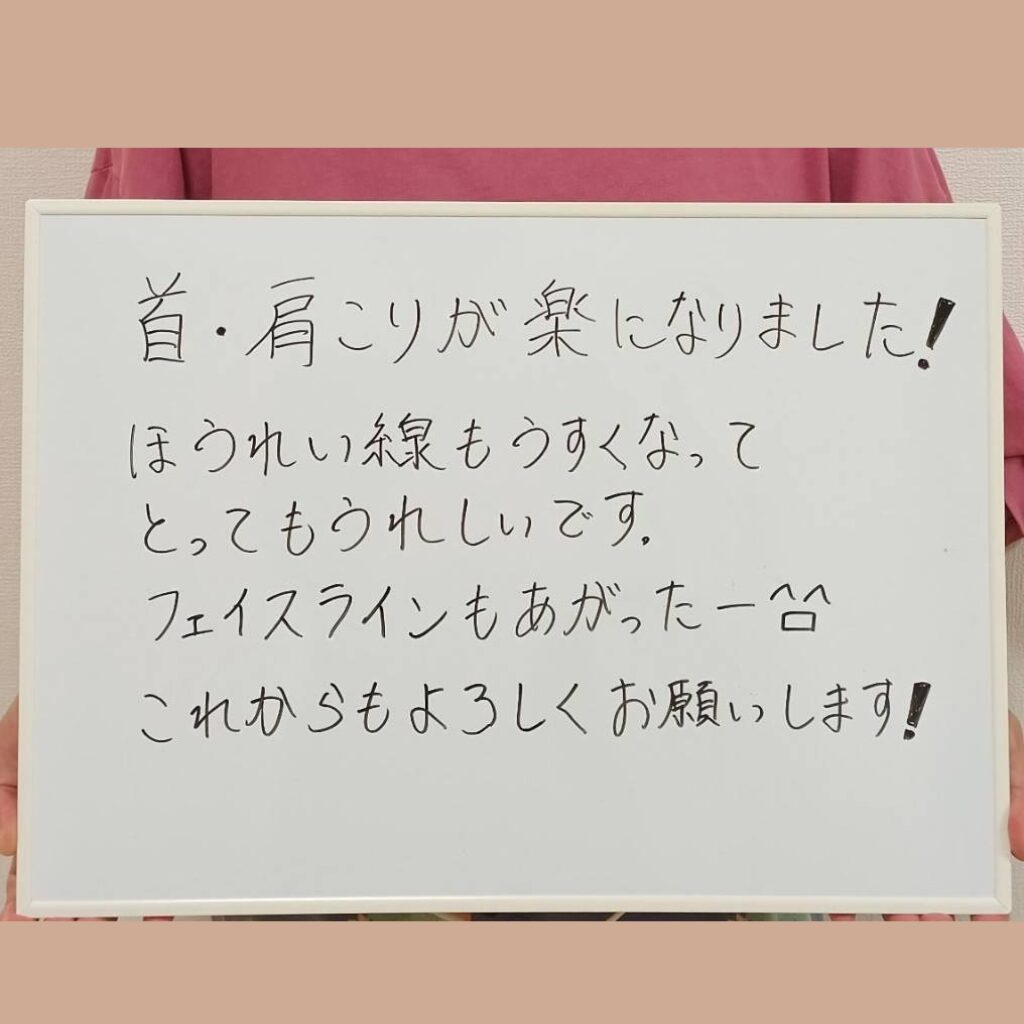 首・肩こりが楽になりました!
ほうれい線もうすくなって
とってもうれしいです。
フェイスラインもあがったー^□^
これからもよろしくお願いします!